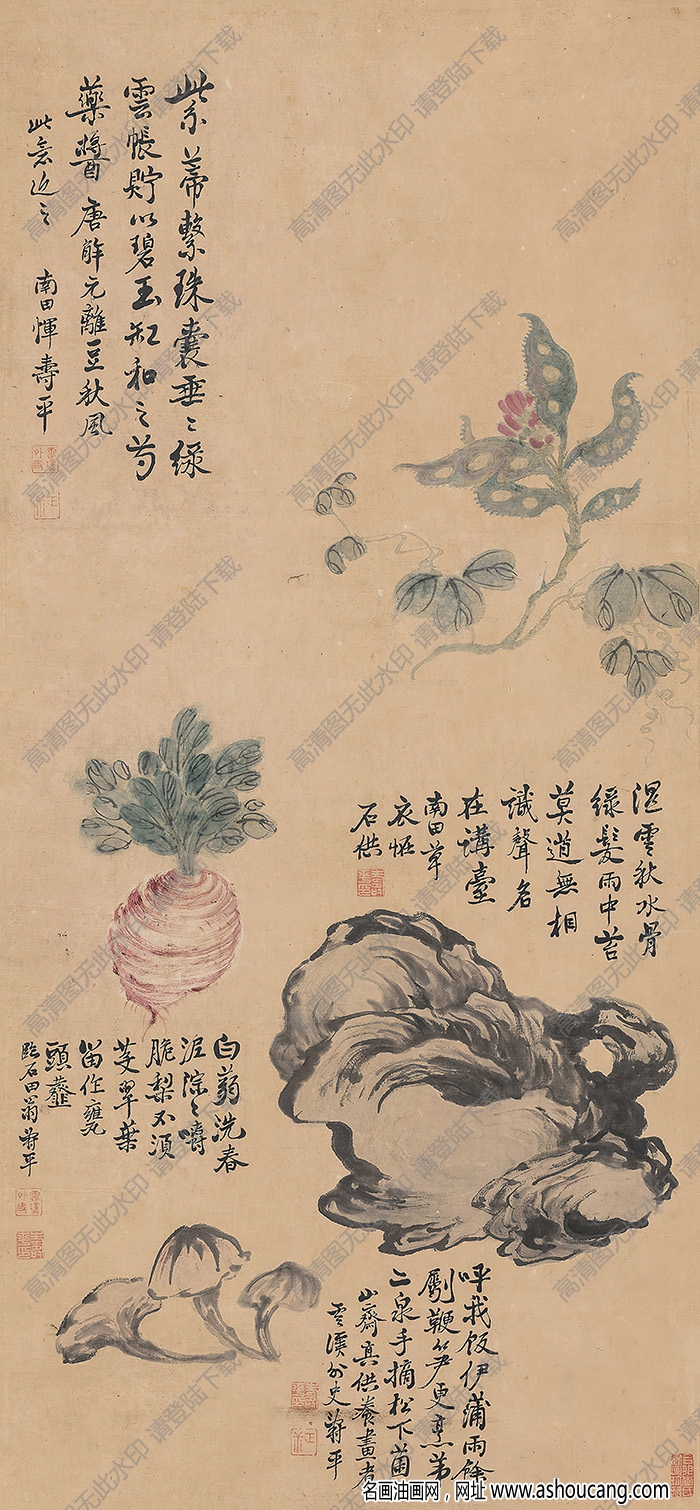 紫蒂繫珠囊垂々綠
雲帳貯以碧玉缸和之芍
藥醬 唐解元離豆秋風
此意近之
南田惲壽平
濕雲秋水骨
綠髮雨中苔
莫道無相
識聲名
在講臺
南田草
衣恆
石供
白蒻洗春
泥淙々嚼
脆梨不須
芟翠葉
留作甕
頭虀
臨石田翁壽平
呼我飯伊蒲雨餘
劚鞭笋更烹第
二泉手摘松下菌
山齋真供養畫者
雲溪外史壽平
高清图无此水印 请登陆下载
名画油画网，网址 www.ashoucang.com